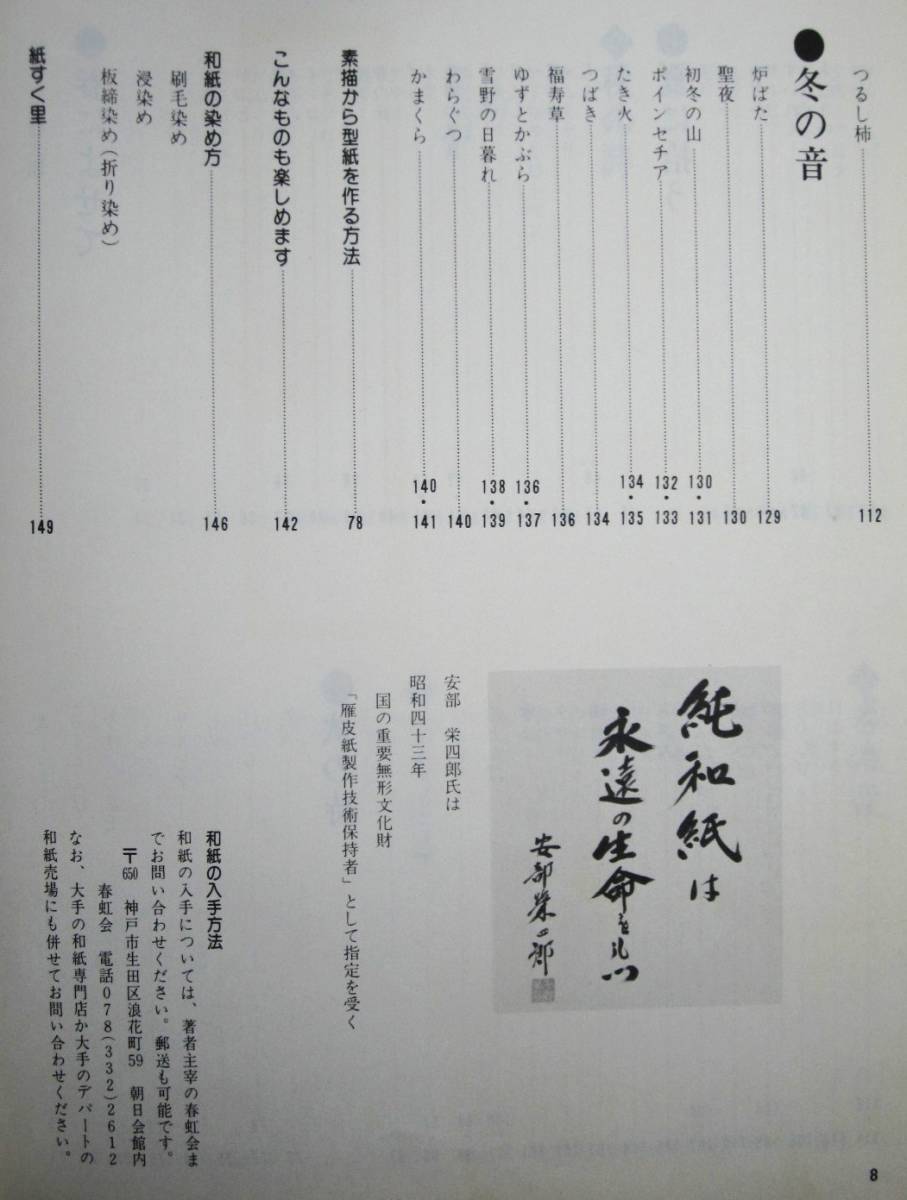 つるし柿 112
●冬の音
炉ばた 129
聖夜 130
初冬の山 130・131
ポインセチア 132・133
たき火 134・135
つばき 134
福寿草 136
ゆずとかぶら 136・137
雪野の日暮れ 138・139
わらぐつ 140
かまくら 140・141
素描から型紙を作る方法 78
こんなものも楽しめます 142
和紙の染め方 146
刷毛染め
浸染め
板締染め(折り染め)
紙すく里 149
純和紙は
永遠の生命を
安部栄四郎
安部 栄四郎氏は
昭和四十三年
国の重要無形文化財
「雁皮紙製作技術保持者」として指定を受く
和紙の入手方法
和紙の入手については、著者主宰の春虹会ま
でお問い合わせください。郵送も可能です。
〒650 神戸市生田区浪花町59 朝日会館内
春虹会 電話078(332)2612
なお、大手の和紙専門店か大手のデパートの
和紙売場にも併せてお問い合わせください。
8